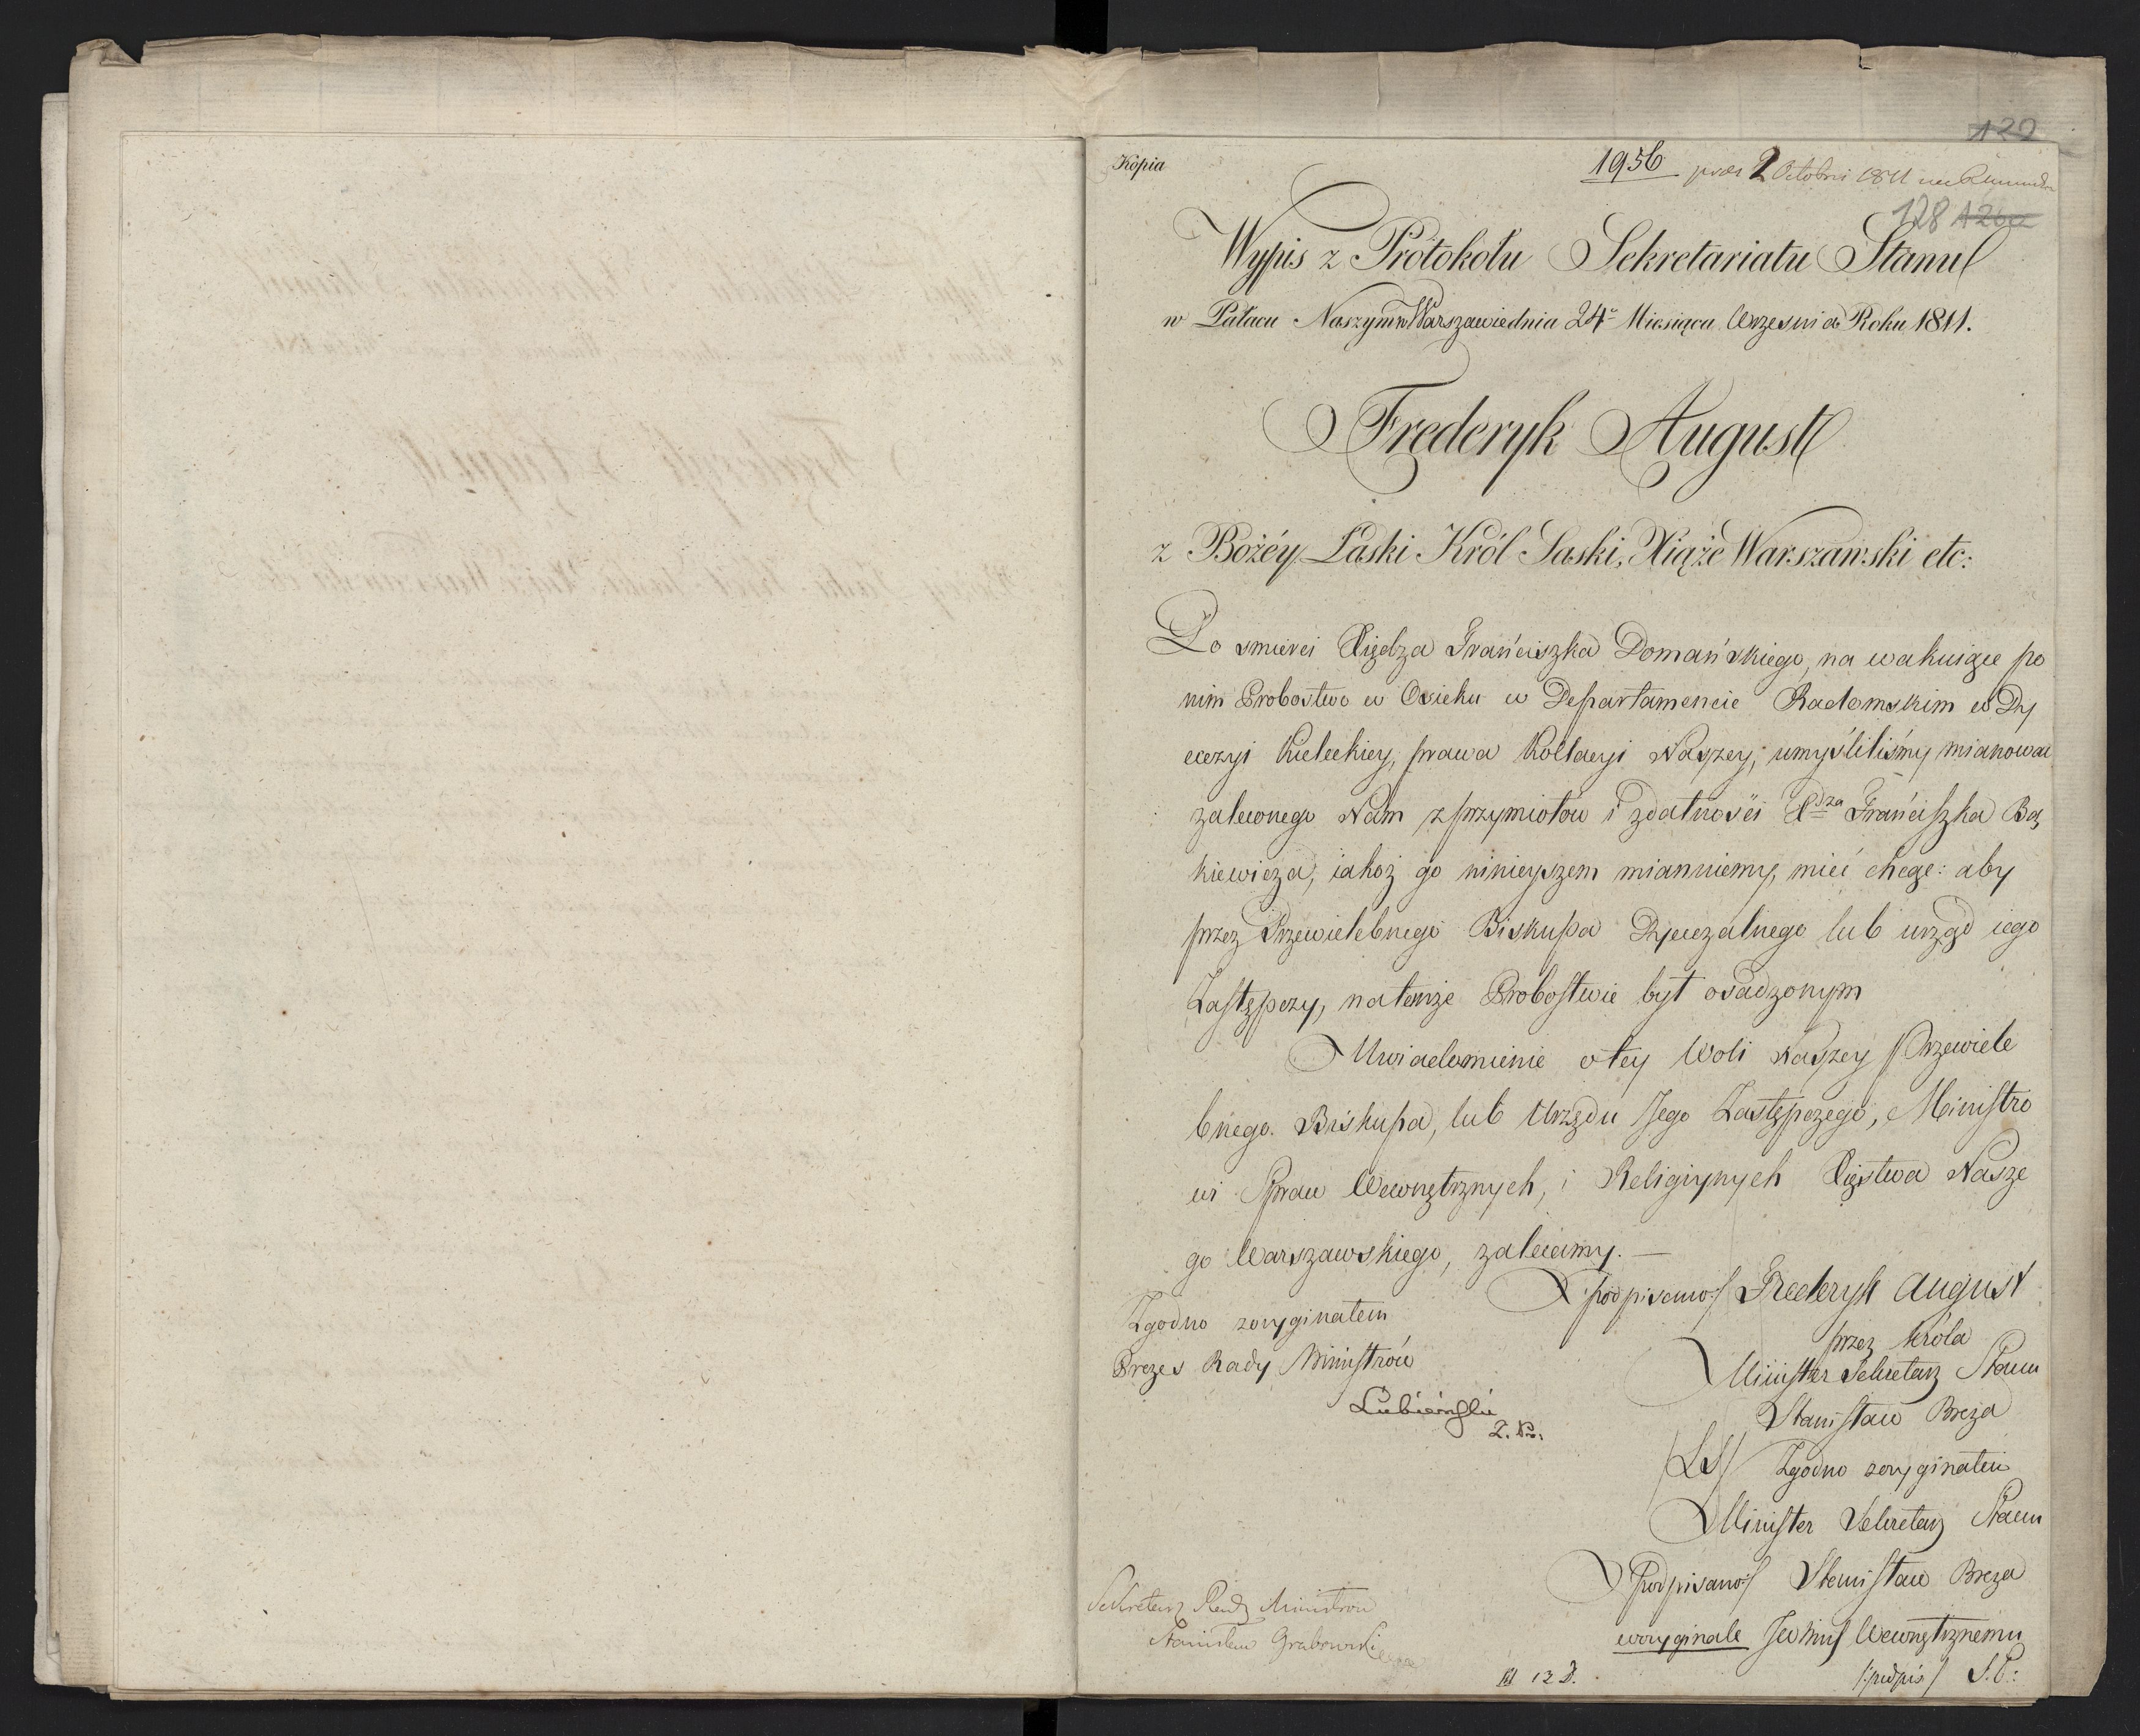 129
Kopia
1956 praes 2 Octobris 1811
128
Wypis z Protokołu Sekretariatu Stanu
w Pałacu Naszym w Warszawie dnia 24º Miesiąca Wrzesnia Roku 1811.
Frederyk August
z Bożéy Łaski Król Saski, Xiąże Warszawski etc:
Po smierci Xiędza Frańciszka Domańskiego, na wakuiące po
nim Probostwo w Osieku w Departamencie Radomskim w Dy
ecezyi Kieleckiey, prawa Kollacyi Naszey; umyśliliśmy mianować
zaleconego Nam z przymiotów i zdatnosći Xdza Frańciszka Bą
kiewicza, iakoż go ninieyszem mianuiemy, mieć chcąc: aby
przez Przewielebnego Biskupa Dyecezalnego lub urząd iego
Zastępczy, na temże Probostwie był osadzonym
Uwiadomienie o tey Woli Naszey Przewiele
bnego Biskupa, lub Urzędu Jego Zastępczego, Ministro
wi Spraw Wewnętrznych, i Religiynych Xięstwa Nasze
go Warszawskiego, zalecamy. —
podpisano:/ Frederyk August
Zgodno z oryginałem
przez Króla
Prezes Rady Ministrów
Minister Sekretarz Stanu
Lubieński
Z. Pr.
Stanisław Breza
/LS/ Zgodno z oryginałem
Minister Sekretarz Stanu
podpisano:/ Stanisław Breza
Sekretarz Rady Ministrow
Stanisław Grabowski
w oryginale JW Mins Wewnętrznemu
M 12 D.
/:podpis/ S. G: